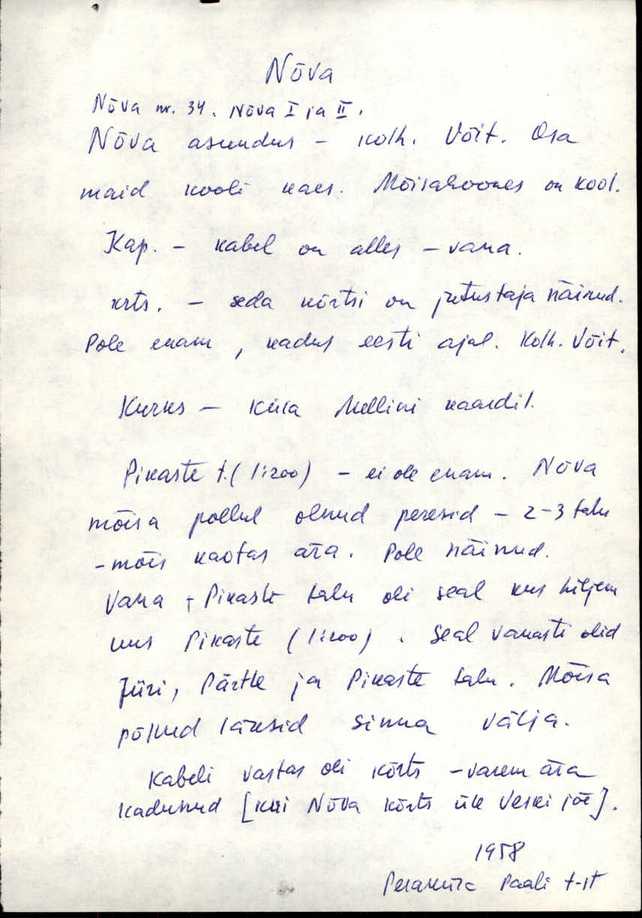 Nõva
Nõva nr. 34. Nõva I ja II.
Nõva asundus – kolh. Võit. Osa
maid kooli käes. Mõisahoones on kool.
Kap. – kabel on alles – vana.
krts. – seda kõrtsi on jutustaja näinud.
Pole enam, kadus eesti ajal. Kolh. Võit.
Kurus – küla Mellini kaardil.
Pikaste t. (1:200) – ei ole enam. Nõva
mõisa põllul olnud peresid – 2–3 talu
– mõis kaotas ära. Pole näinud.
Vana + Pikaste talu oli seal kus hiljem
uus Pikaste (1:200). Seal vanasti olid
Jüri, Pärtle ja Pikaste talu. Mõisa
põllud läksid sinna välja.
Kabeli vastas oli kõrts – varem ära
kadunud [kui Nõva kõrts üle Veski jõe].
1958
Peraküla Paali t-st